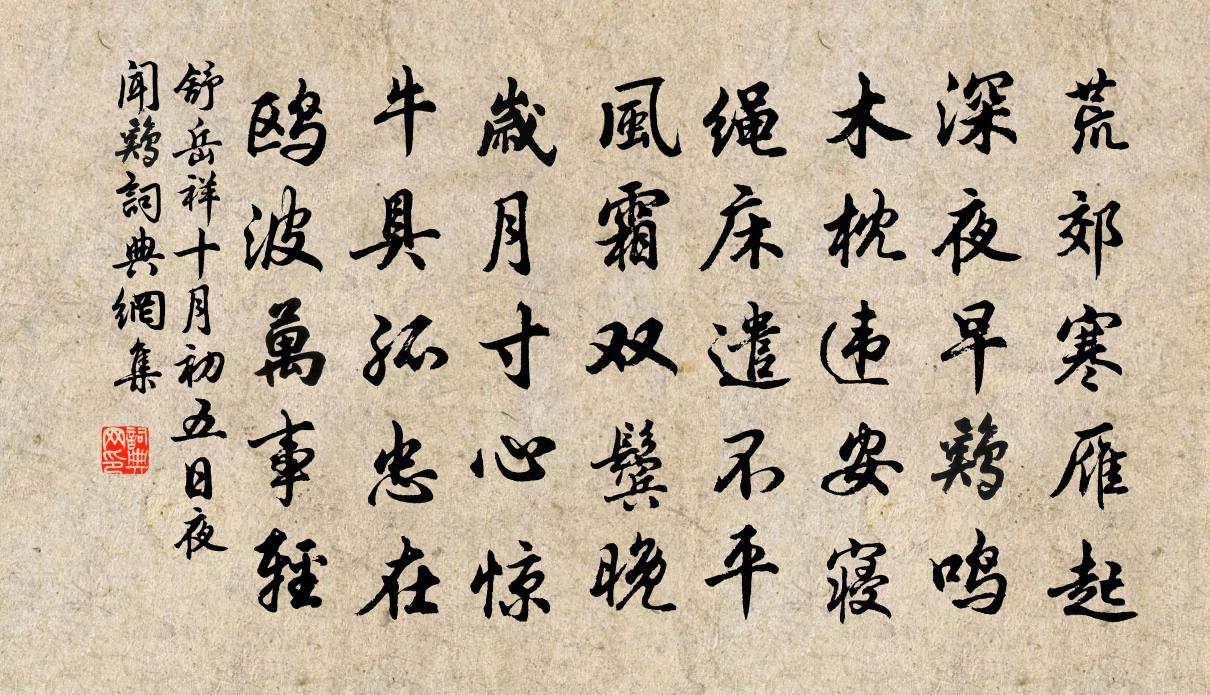 荒郊寒雁起
深夜早鶏鳴
木枕违安寝
绳床遣不平
風霜双鬓晚
歲月寸心惊
牛具孤忠在
鸥波萬事輕
舒岳祥十月初五日夜
聞鶏詞典網集
詞典
网印